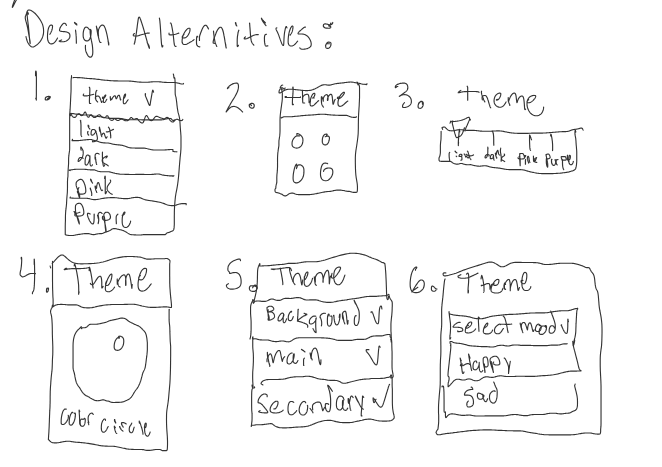 Design Alternitives:
1.
theme v
light
dark
pink
Purple
2.
theme
3.
theme
light dark pink Purple
4.
Theme
color circle
5.
Theme
Background v
main v
Secondary v
6.
Theme
select mood v
Happy
Sad